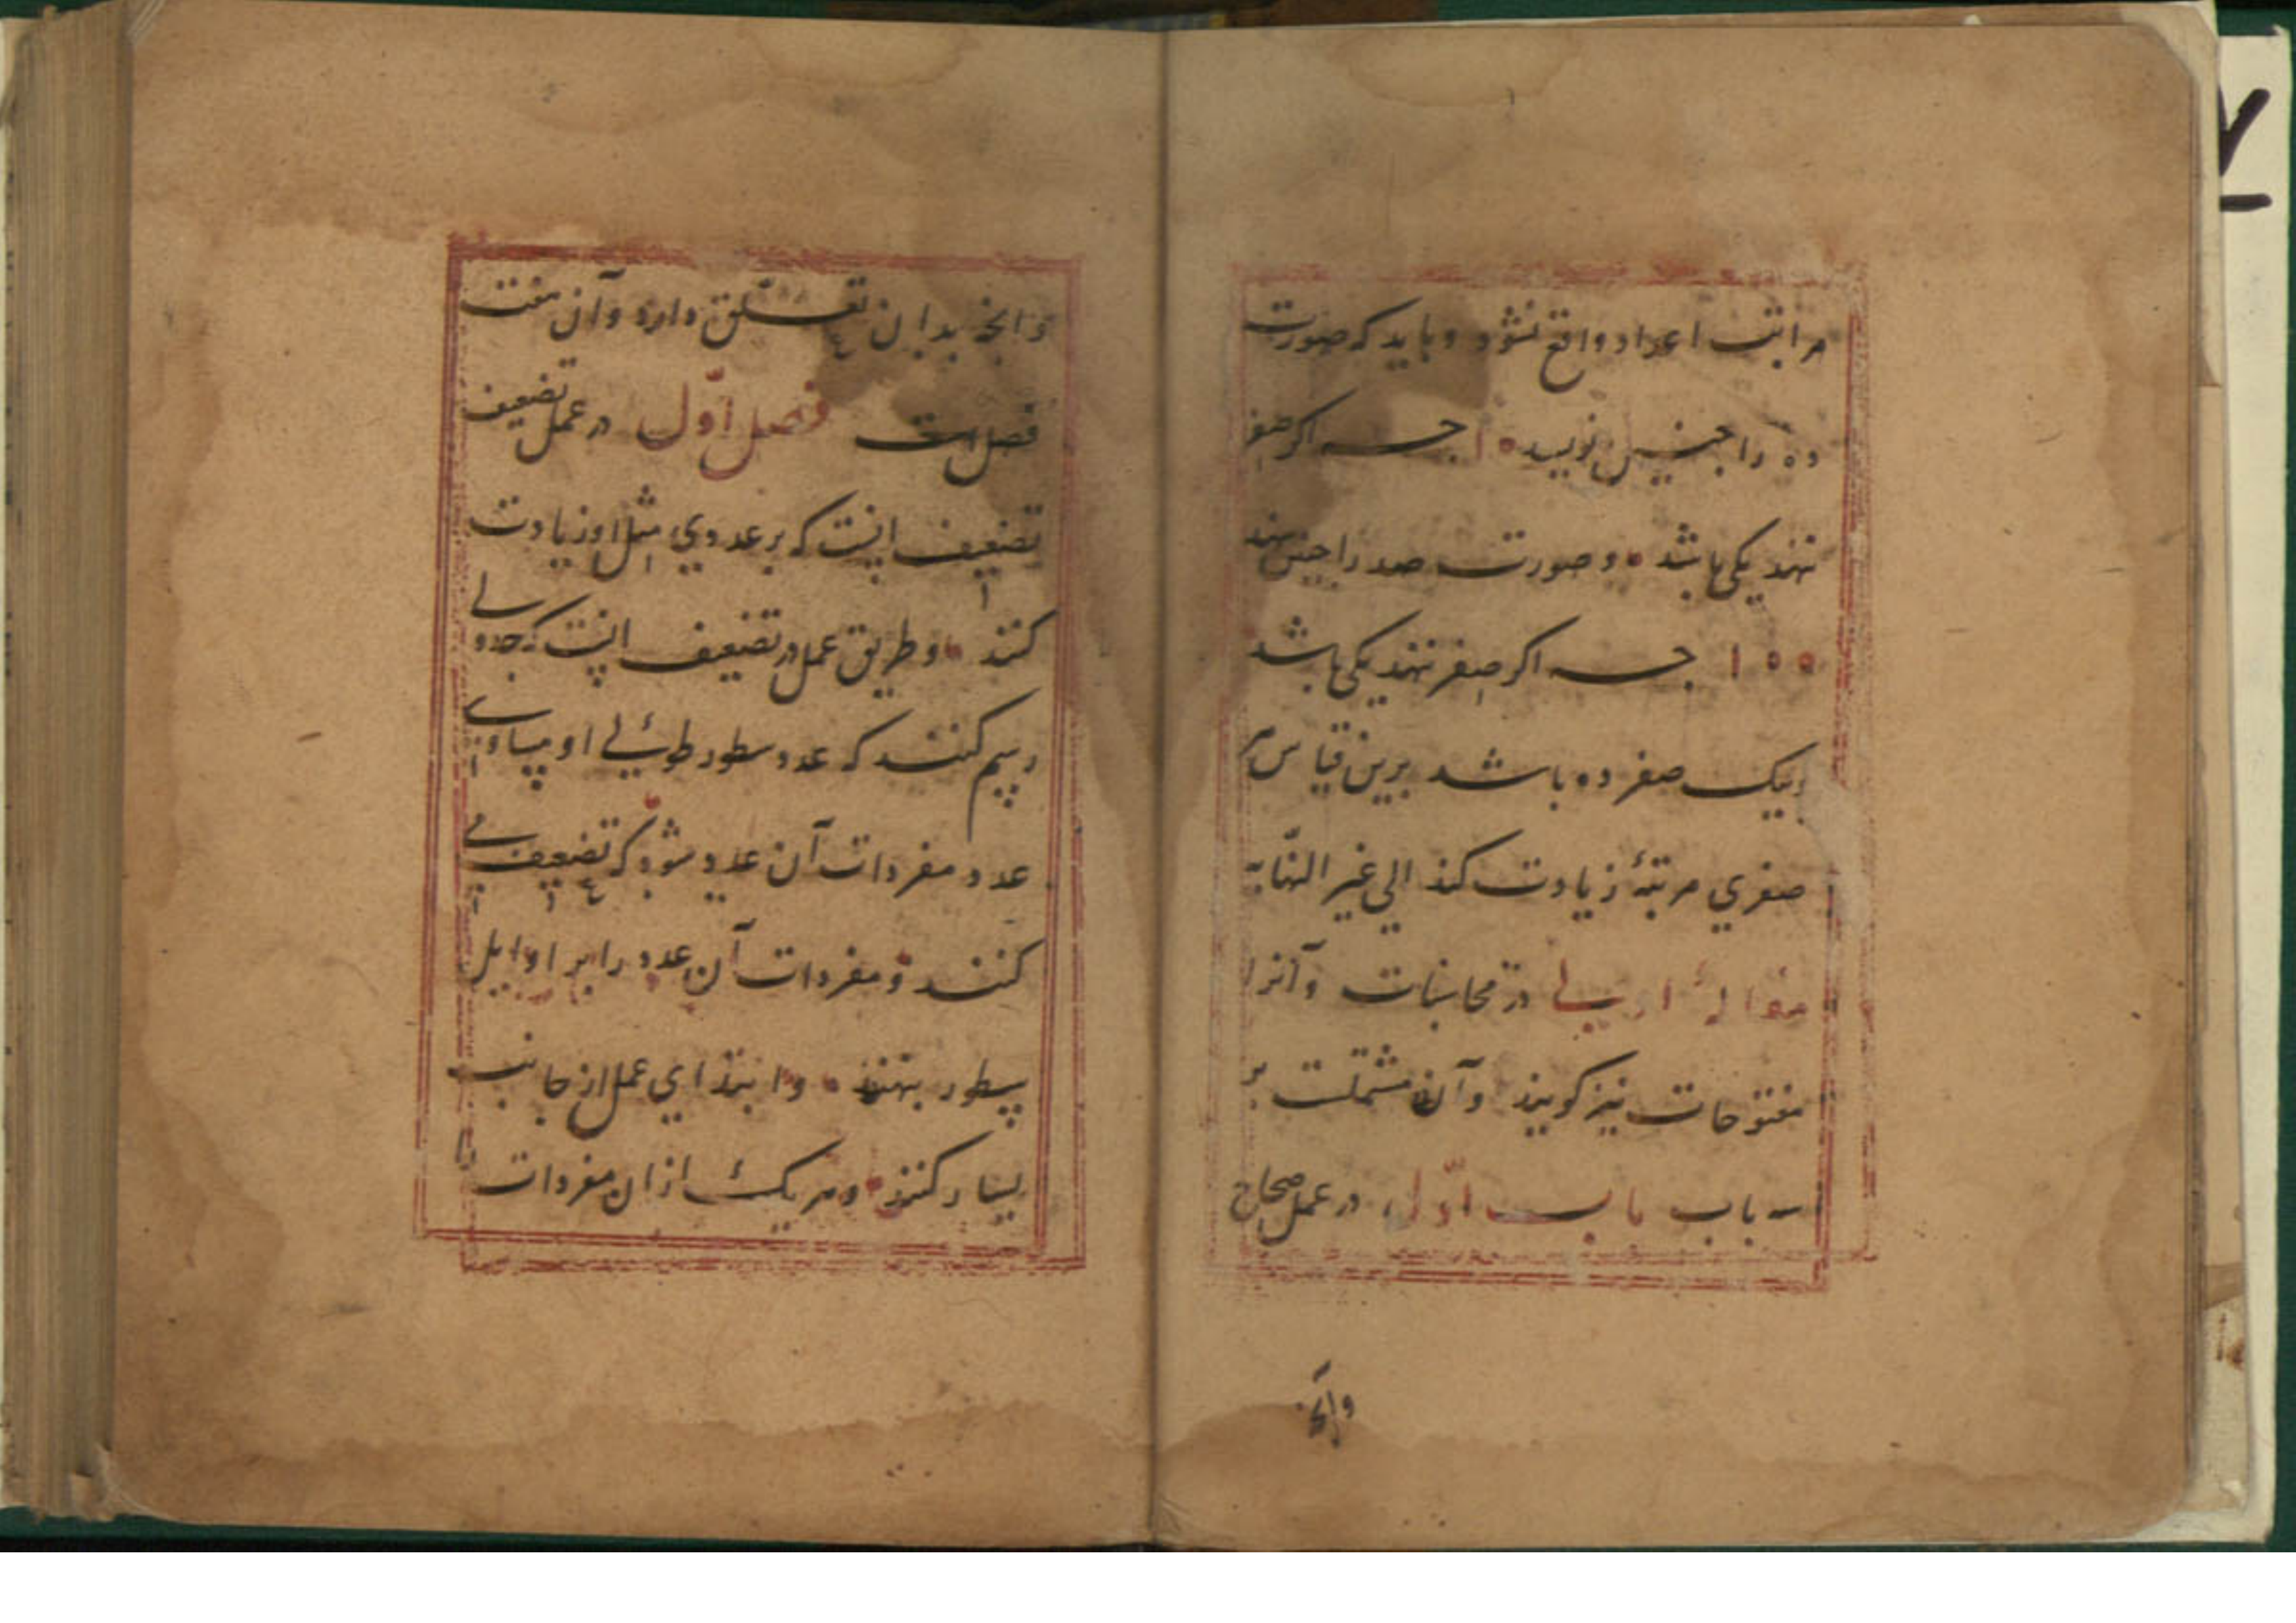 مراتب اعداد واقع نشود و باید که صورت
ده را چنین نویسد ۱۰ چه اکر صفر
ننهند یکی باشد و صورت صد را چنین نهند
۱۰۰ چه اکر صفر ننهند یکی باشد
و بیک صفر ده باشد برین قیاس هر
صفری مرتبهٔ زیادت کند الی غیر النهایه
مقالهٔ اولی در محاسبات و آنرا
مفتوحات نیز کویند و آن مشتملست بر
سه باب باب اوّل در عمل صحاح
وآنچه
وانچه بدان تعلّق دارد و آن هفت
فصل است فصل اوّل در عمل تضعیف
تضعیف اینست که بر عددی مثل او زیادت
کنند و طریق عمل در تضعیف اینست که جدولی
رسم کنند که عدد سطور طولی او مساوی
عدد مفردات آن عدد شود که تضعیف می
کنند و مفردات آن عدد را بر اوایل
سطور بنهند و ابتدای عمل از جانب
یسار کنند و هر یک از ان مفردات را